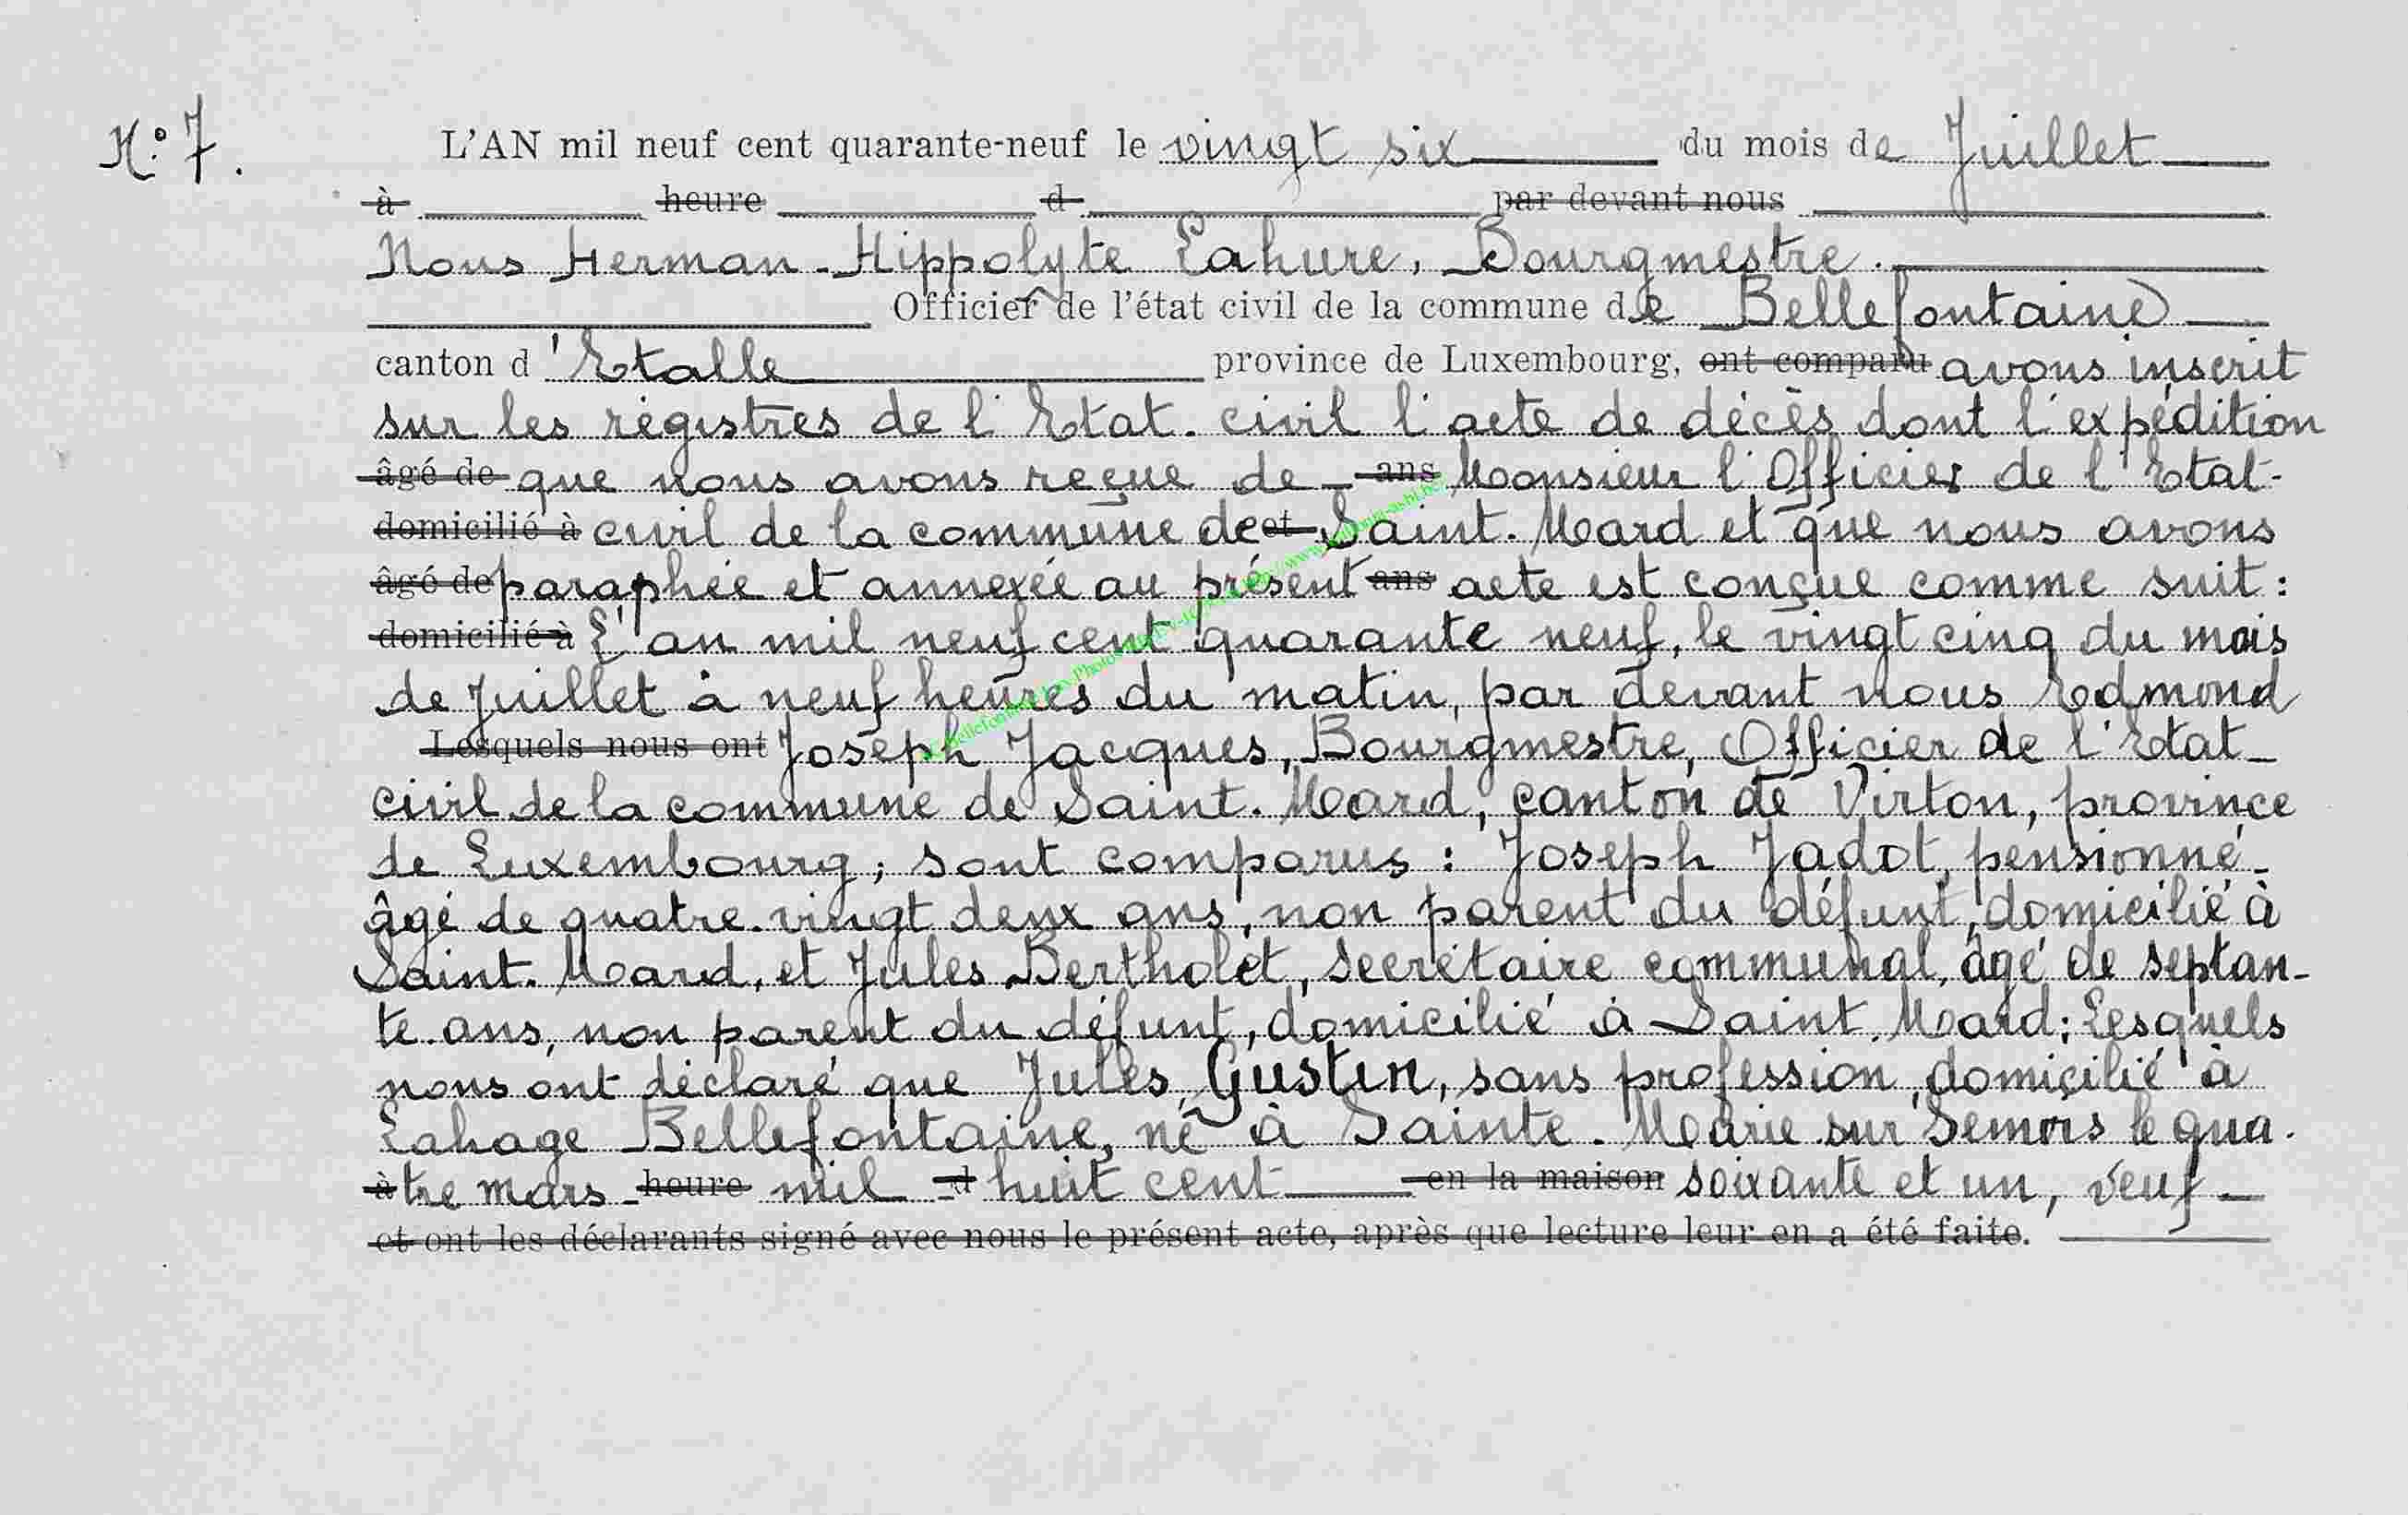 N° 7.
L'AN mil neuf cent quarante-neuf le vingt six du mois de Juillet
à heure d par devant nous
Nous Herman-Hippolyte Lahure, Bourgmestre.
Officier de l'état civil de la commune de Bellefontaine
canton d'Etalle province de Luxembourg, ont comparu avons inscrit
sur les régistres de l'Etat-civil l'acte de décès dont l'expédition
âgé de que nous avons reçue de ans Monsieur l'Officier de l'Etat-
domicilié à civil de la commune de et Saint-Mard et que nous avons
âgé de paraphée et annexée au présent ans acte est conçue comme suit :
domicilié à L'an mil neuf cent quarante neuf, le vingt cinq du mois
de Juillet à neuf heures du matin, par devant nous Edmond
Lesquels nous ont Joseph Jacques, Bourgmestre, Officier de l'Etat-
civil de la commune de Saint-Mard, canton de Virton, province
de Luxembourg ; sont comparus : Joseph Jadot, pensionné
âgé de quatre-vingt deux ans, non parent du défunt, domicilié à
Saint-Mard, et Jules Bertholet, secrétaire communal, âgé de septan-
te ans, non parent du défunt, domicilié à Saint-Mard ; Lesquels
nous ont déclaré que Jules, Gustin, sans profession, domicilié à
Lahage Bellefontaine, né à Sainte-Marie-sur Semois le qua-
à tre mars heure mil d huit cent en la maison soixante et un, veuf
et ont les déclarants signé avec nous le présent acte, après que lecture leur en a été faite.